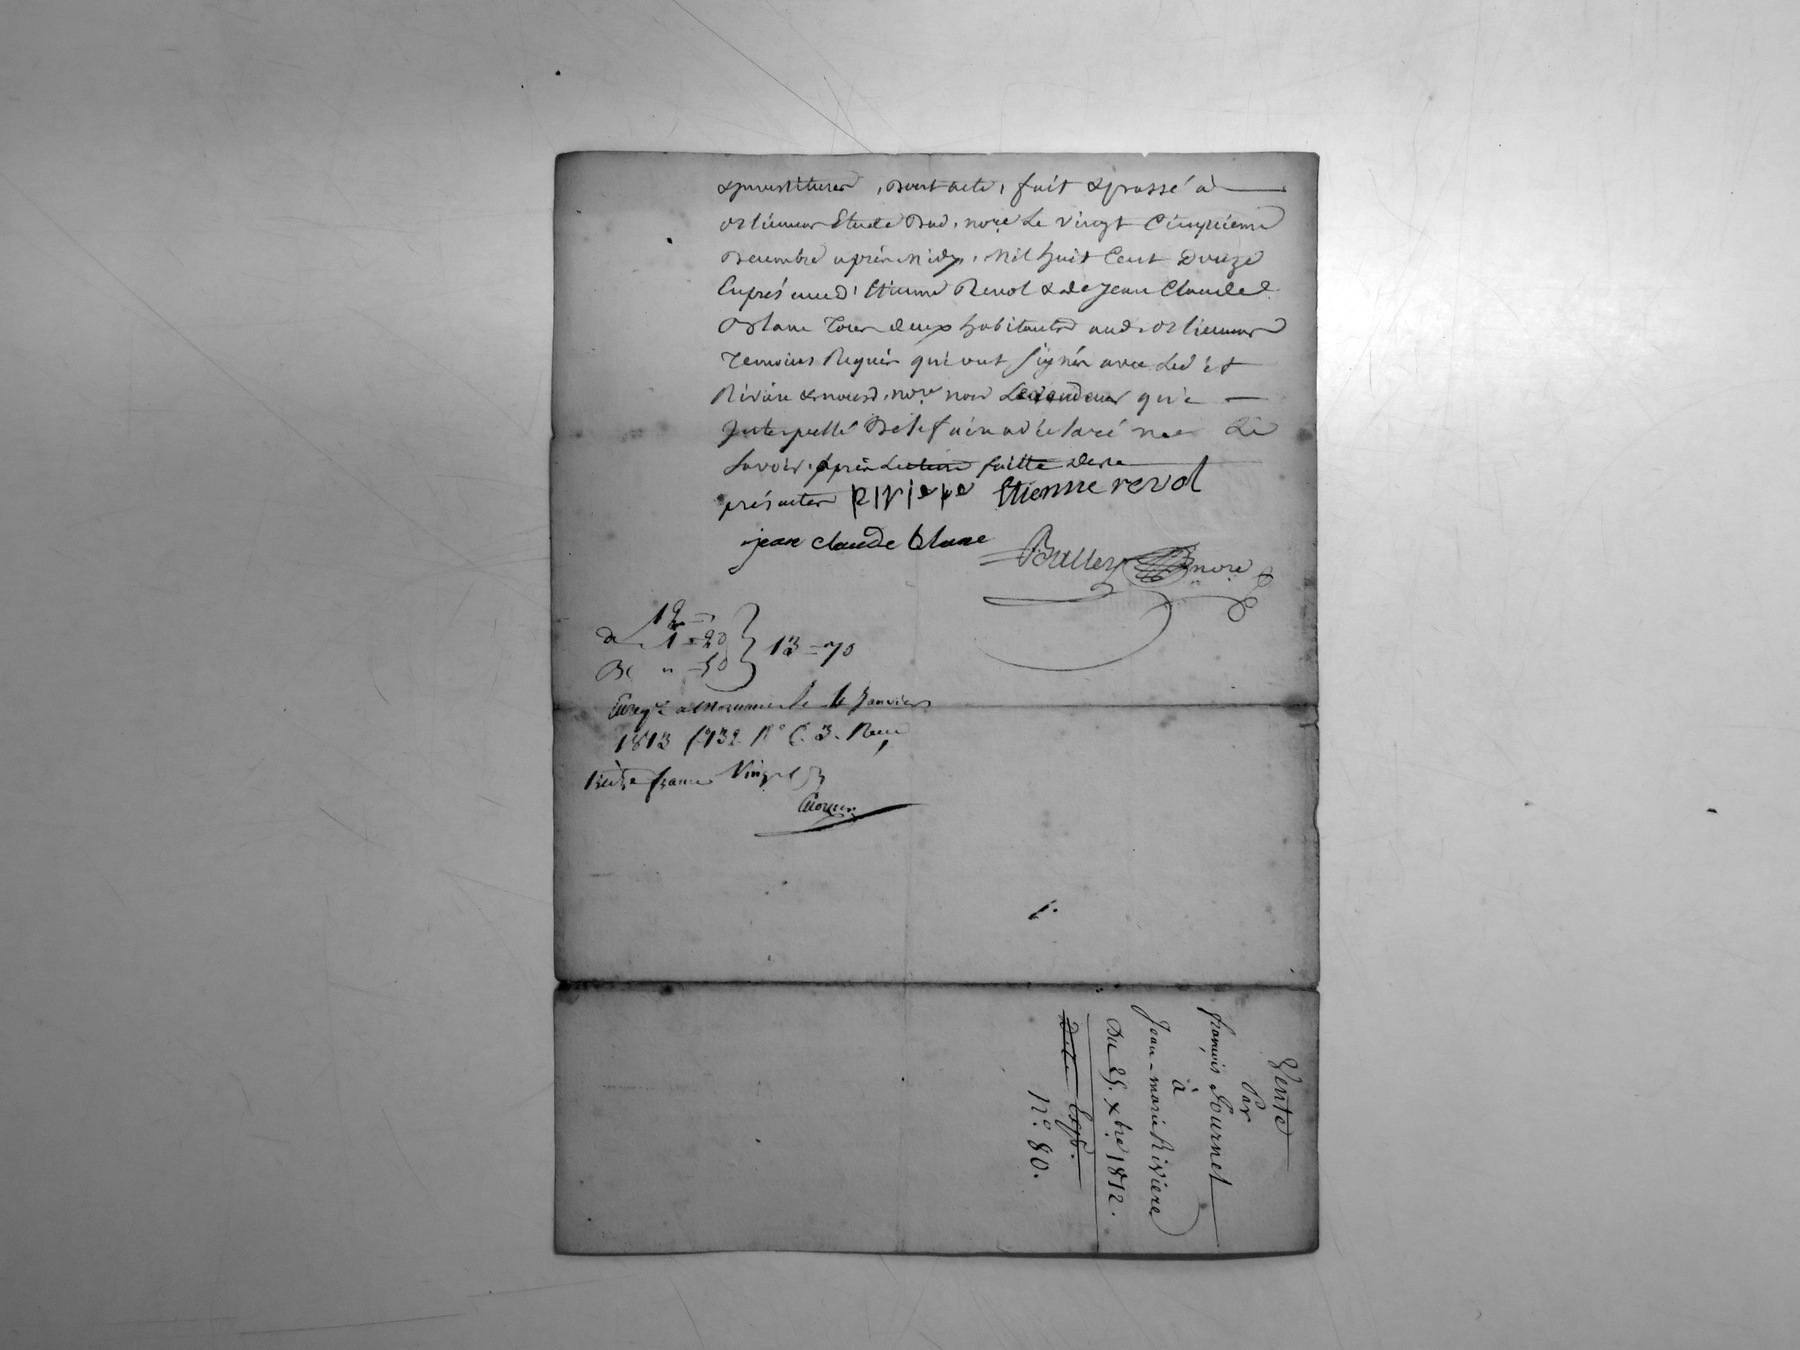 & investitures, dont acte, fait & passé à
orliennas Etude dud. nore Le vingt Cinquieme
Decembre après midy, Mil huit Cent Douze
En présence d'Etienne Revol & de Jean Claude
Blanc Tous deux habitants aud. orliennas
Temoins Requis qui ont signés avec Led. st
Riviere & nousd. nore non Le vendeur qui
Interpellé De le faire a déclaré ne Le
savoir. après Lecture faitte de
présentes riviere Etienne revol
jean claude blanc
Bulley nore
12 =
de 1 = 20 } 13 = 70
" = 50
Enregé a Mornant le 4 Janvier
1813 f. 132 Ro C. 3. Reçu
treize francs
Vente
Par
françois Journet
à
Jean-marie Riviere
Du 25. xbre 1812.
Dite Expd.
No. 80.